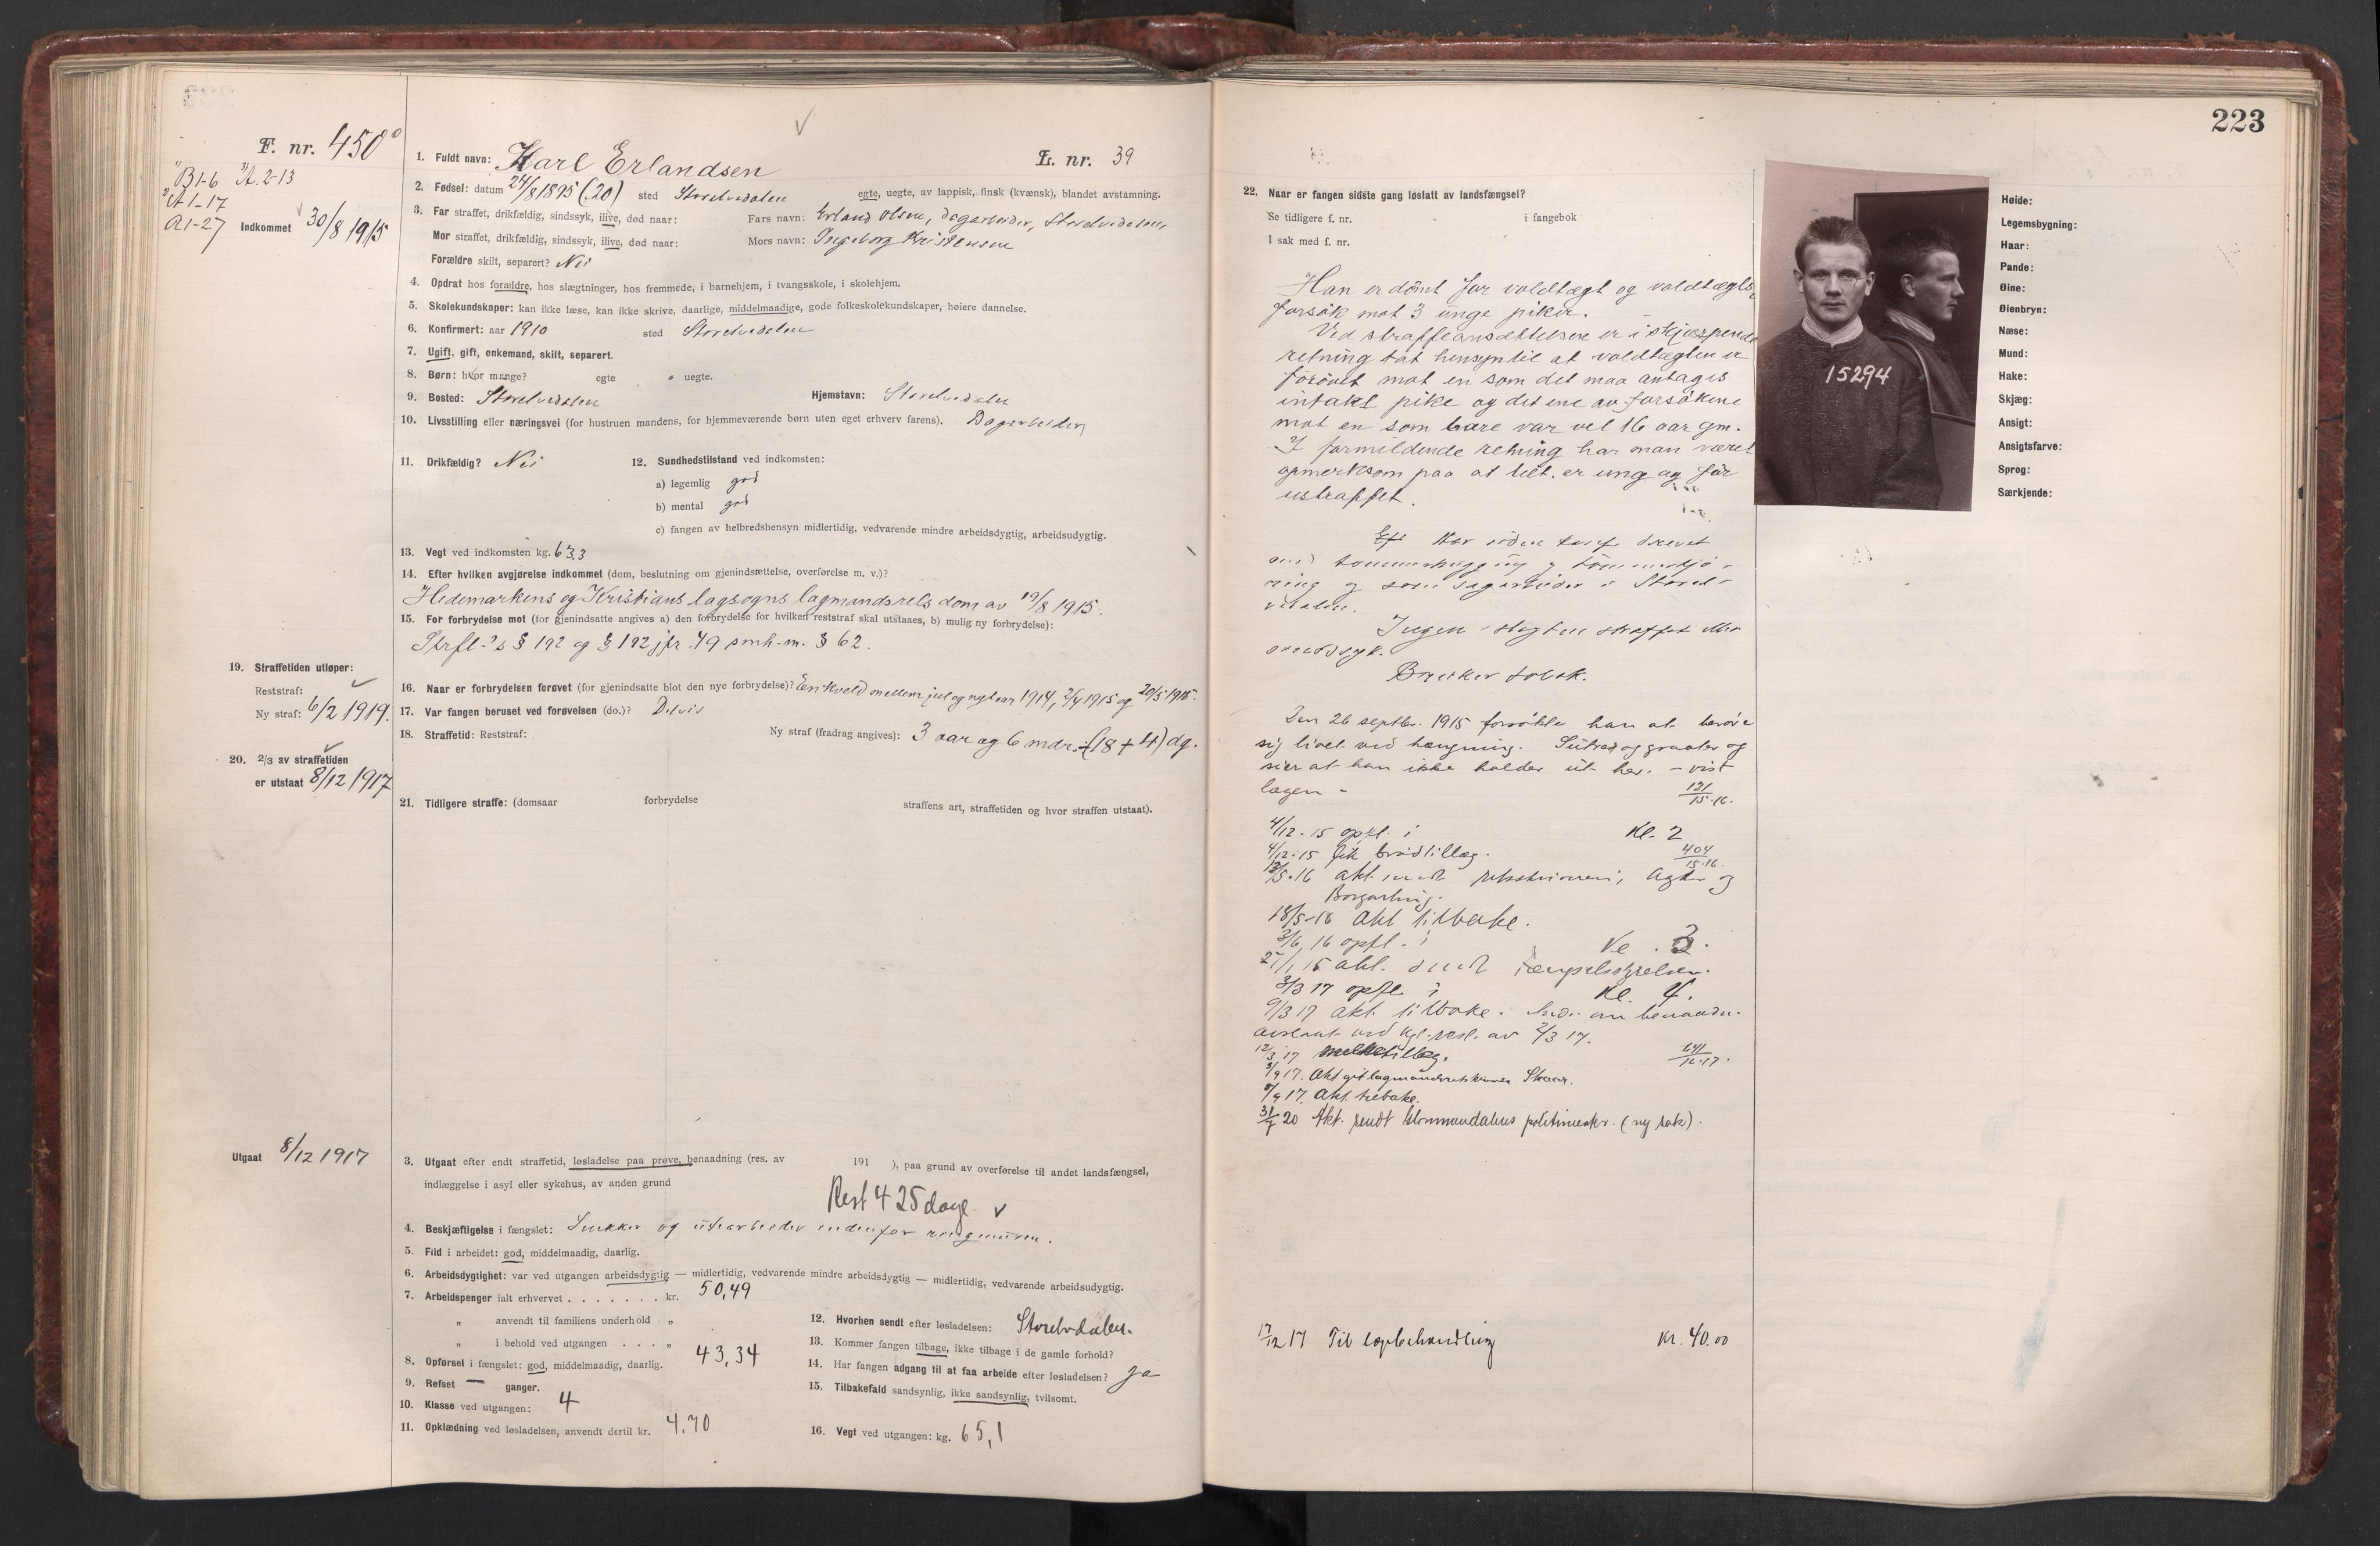 F. nr. 450
B1-6 A.2-13
A1-17
A1-27 Indkommet 30/8 1915
1. Fuldt navn: Karl Erlandsen L. nr. 39
2. Fødsel: datum 24/8 1895 (20) sted Storelvedalen egte, uegte, av lappisk, finsk (kvænsk), blandet avstamning.
3. Far straffet, drikfældig, sindssyk, ilive, død naar: Fars navn: Erland Olsen, dagarbeider, Storelvedalen,
Mor straffet, drikfældig, sindssyk, ilive, død naar: Mors navn: Ingeborg Kristensen
Forældre skilt, separert? Nei
4. Opdrat hos forældre, hos slægtninger, hos fremmede, i barnehjem, i tvangsskole, i skolehjem.
5. Skolekundskaper: kan ikke læse, kan ikke skrive, daarlige, middelmaadige, gode folkeskolekundskaper, høiere dannelse.
6. Konfirmert: aar 1910 sted Storelvedalen
7. Ugift, gift, enkemand, skilt, separert.
8. Børn: hvor mange? egte " uegte.
9. Bosted: Storelvedalen Hjemstavn: Storelvedalen
10. Livsstilling eller næringsvei (for hustruen mandens, for hjemmeværende børn uten eget erhverv farens). Dagarbeider
11. Drikfældig? Nei 12. Sundhedstilstand ved indkomsten:
a) legemlig god
b) mental god
c) fangen av helbredshensyn midlertidig, vedvarende mindre arbeidsdygtig, arbeidsudygtig.
13. Vegt ved indkomsten kg. 63.3
14. Efter hvilken avgjørelse indkommet (dom, beslutning om gjenindsættelse, overførelse m. v.)?
Hedemarkens og Kristians lagsogns lagmandsrets dom av 19/8 1915.
15. For forbrydelse mot (for gjenindsatte angives a) den forbrydelse for hvilken reststraf skal utstaaes, b) mulig ny forbrydelse):
Strfl.'s § 192 og § 192 jfr. 49 smh.m. § 62.
19. Straffetiden utløper:
Reststraf:
Ny straf: 6/2 1919.
16. Naar er forbrydelsen forøvet (for gjenindsatte blot den nye forbrydelse)? En kveld mellem jul og nytaar 1914, 2/4 1915 og 20/5 1915.
17. Var fangen beruset ved forøvelsen (do.)? Delvis
18. Straffetid: Reststraf: Ny straf (fradrag angives): 3 aar og 6 mdr. ÷ (18 + 4) dg.
20. 2/3 av straffetiden
er utstaat 8/12 1917
21. Tidligere straffe: (domsaar forbrydelse straffens art, straffetiden og hvor straffen utstaat).
Utgaat 8/12 1917
3. Utgaat efter endt straffetid, løsladelse paa prøve, benaadning (res. av 191 ), paa grund av overførelse til andet landsfængsel,
indlæggelse i asyl eller sykehus, av anden grund
Rest 425 dage
4. Beskjæftigelse i fængslet: Snekker og utearbeider indenfor ringmuren.
5. Flid i arbeidet: god, middelmaadig, daarlig.
6. Arbeidsdygtighet: var ved utgangen arbeidsdygtig — midlertidig, vedvarende mindre arbeidsdygtig — midlertidig, vedvarende arbeidsudygtig.
7. Arbeidspenger ialt erhvervet . . . . . . . kr. 50,49
" anvendt til familiens underhold "
" i behold ved utgangen . . . " 43,34
8. Opførsel i fængslet: god, middelmaadig, daarlig.
9. Refset — ganger.
10. Klasse ved utgangen: 4
11. Opklædning ved løsladelsen, anvendt dertil kr. 4.70
12. Hvorhen sendt efter løsladelsen: Storelvdalen.
13. Kommer fangen tilbage, ikke tilbage i de gamle forhold?
14. Har fangen adgang til at faa arbeide efter løsladelsen? Ja
15. Tilbakefald sandsynlig, ikke sandsynlig, tvilsomt.
16. Vegt ved utgangen: kg. 65,1
223
22. Naar er fangen sidste gang løslatt av landsfængsel?
Se tidligere f. nr. i fangebok
I sak med f. nr.
Han er dömt for voldtægt og voldtægts-
forsök mot 3 unge piker.
Ved straffeansættelsen er i skjærpende
retning tat hensyn til at voldtægten er
forövet mot en som det maa antages
intakt pike og det ene av forsökene
mot en som bare var vel 16 aar gm.
I formildende retning har man været
opmerksom paa at tilt. er ung og för
ustraffet.
Har siden drevet
med tømmerhugging og tømmerkjø-
ring og som dagarbeider i Storel-
vedalen.
Ingen i slegten straffet eller
sindssyk.
Bruker tobak.
Den 26 septbr. 1915 forsökte han at beröve
sig livet ved hængning. Sutrer og graater og
sier at han ikke holder ut her. – vist
lægen – 131/15-16.
4/12-15 opfl. i Kl. 2
4/12-15 fik brödtillæg. 404/15-16.
12/5-16 akt. sendt retsskriveren i Agder og
Borgarting.
18/5-16 akt tilbake.
3/6, 16 opfl. i Kl. 3.
akt. sendt Fængselsstyrelsen.
3/3 17 opfl. i Kl. 4.
9/3 17 akt. tilbake. And. om benaadn.
avslaat ved kgl. resl. av 2/3 17.
12/3 17 melketillæg. 641/16-17.
3/9 17. Akt git lagmandsretskriver
8/9 17. Akt. tilbake.
31/7 20 Akt. sendt Glommendalens politimester. (ny sak).
17/12 17 Til lægebehandling Kr. 40.00
15294
Høide:
Legemsbygning:
Haar:
Pande:
Øine:
Øienbryn:
Næse:
Mund:
Hake:
Skjæg:
Ansigt:
Ansigtsfarve:
Sprog:
Særkjende: